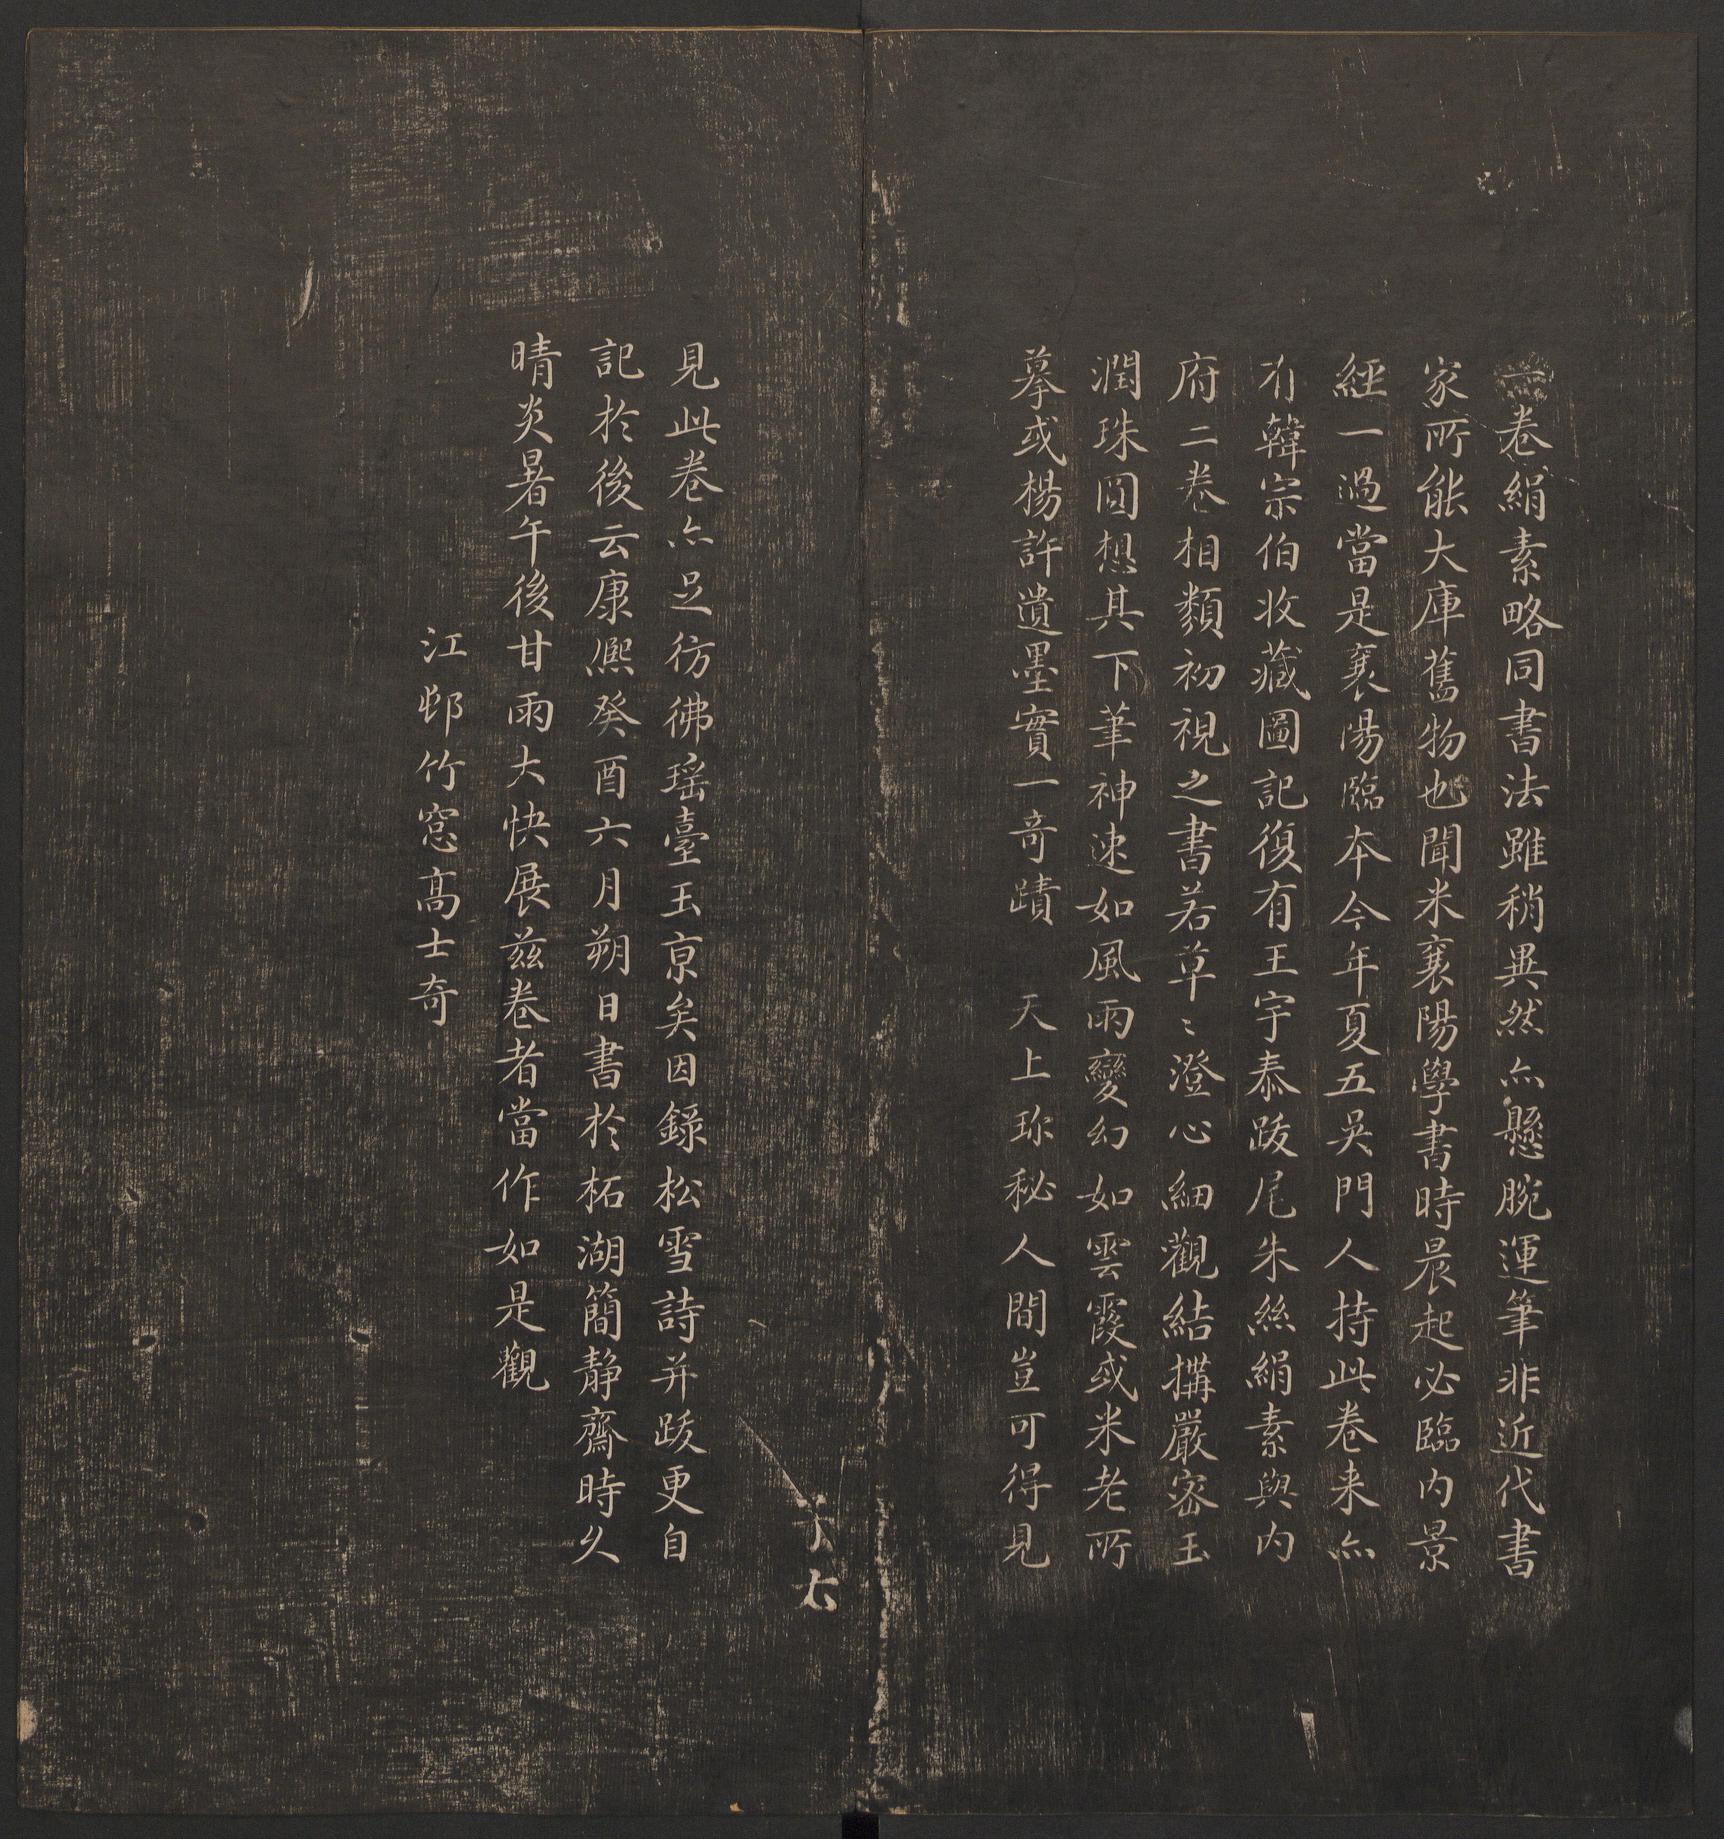 一卷絹素略同書法雖稍異然亦懸腕運筆非近代書
家所能大庫舊物也聞米襄陽學書時晨起必臨內景
經一過當是襄陽臨本今年夏五吳門人持此卷来亦
有韓宗伯收藏圖記復有王宇泰跋尾朱絲絹素與內
府二卷相類初視之書若草〻澄心細觀結搆嚴密玉
潤珠圓想其下筆神速如風雨變幻如雲霞或米老所
摹或楊許遺墨實一奇蹟　天上珎秘人間豈可得見
見此卷亦足彷彿瑤臺玉京矣因錄松雪詩并跋更自
記於後云康熙癸酉六月朔日書於柘湖簡静齋時久
晴炎暑午後甘雨大快展茲卷者當作如是觀
江邨竹窓高士奇
十七